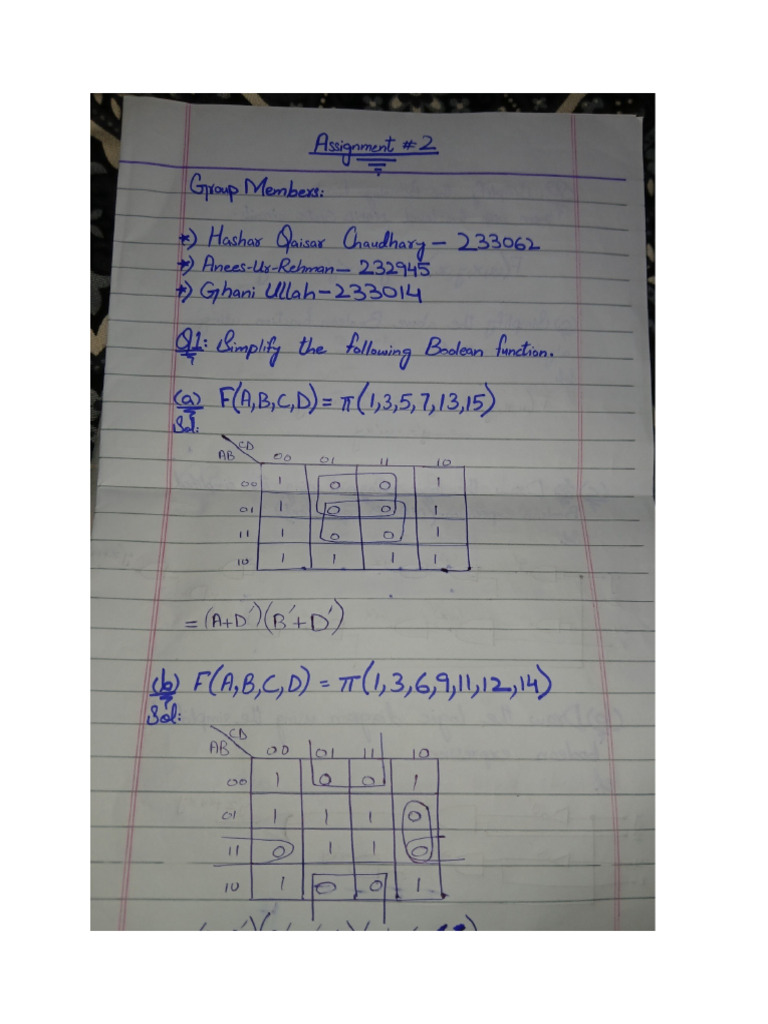 Assignment # 2
Group Members:
*) Hashar Qaisar Chaudhary - 233062
*) Anees-Ur-Rehman - 232945
*) Ghani Ullah - 233014
Q1: Simplify the following Boolean function.
(a) F(A,B,C,D) = π(1,3,5,7,13,15)
Sol:
AB CD 00 01 11 10
00 1 0 0 1
01 1 0 0 1
11 1 0 0 1
10 1 1 1 1
= (A+D')(B'+D')
(b) F(A,B,C,D) = π(1,3,6,9,11,12,14)
Sol:
AB CD 00 01 11 10
00 1 0 0 1
01 1 1 1 0
11 0 1 1 0
10 1 0 0 1